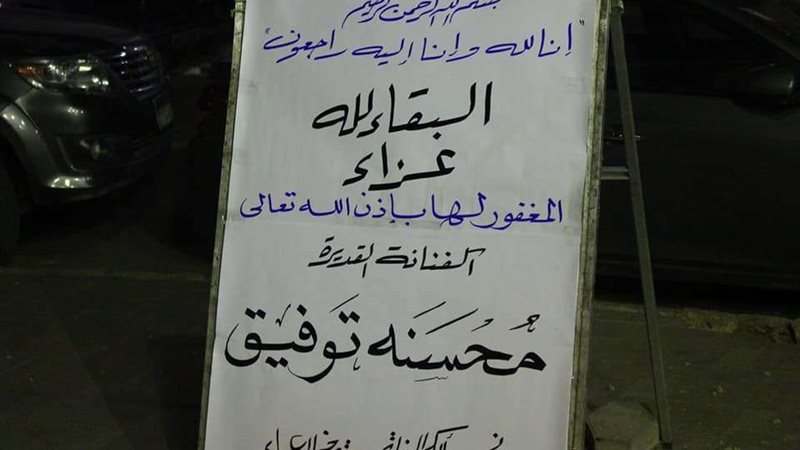 بسم الله الرحمن الرحيم
"إنا لله وإنا إليه راجعون"
البقاء لله
عزاء
المغفور لها بإذن الله تعالى
الفنانة القديرة
مُحسَنه توَفيق